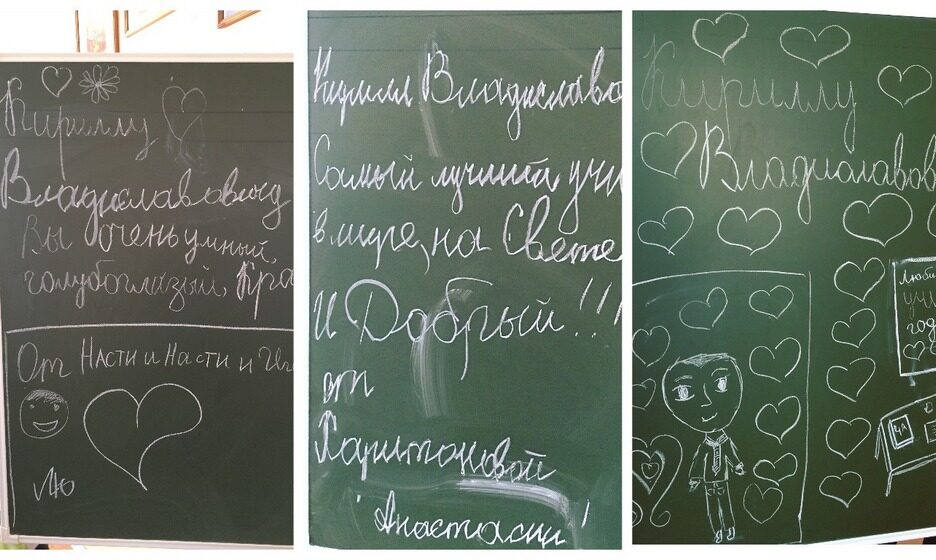 Кириллу
Владиславовичу
Вы очень умный,
голубоглазый, Кра
От Насти и Насти и
Лю
Кирилл Владиславо
Самый лучший учи
в мире, на Свете
И Добрый!!!
от
Харитоновой
Анастасии!
Кириллу
Владиславов
Люби
учи
год
4А